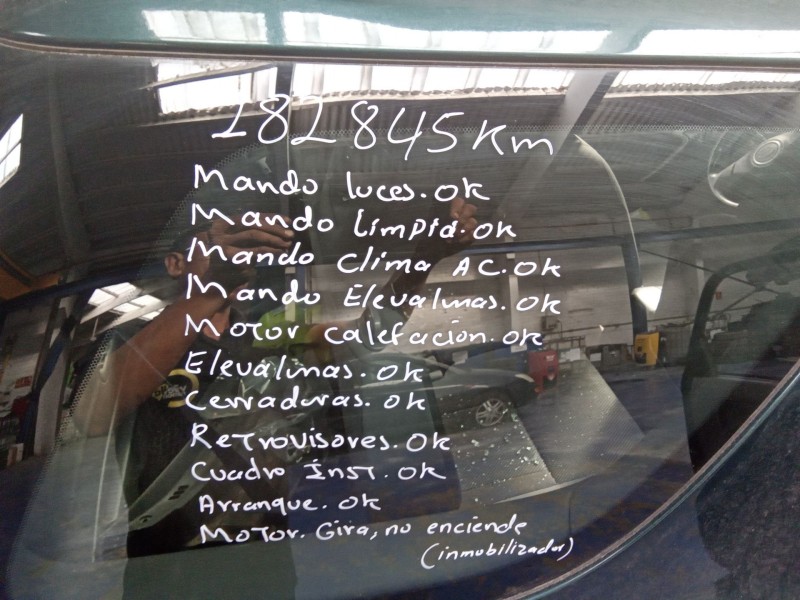 182845 Km
Mando luces. ok
Mando limpia. ok
Mando Clima AC. ok
Mando Elevalunas. ok
Motor calefacion. ok
Elevalunas. ok
Cerraduras. ok
Retrovisores. ok
Cuadro Inst. ok
Arranque. ok
Motor. Gira, no enciende
(inmobilizador)